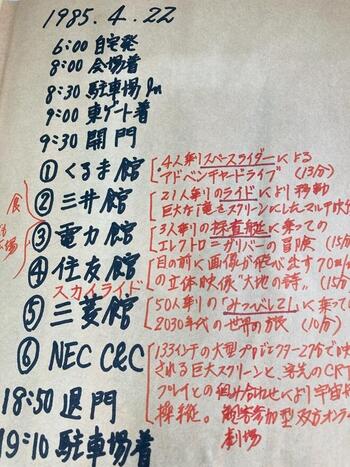 1985. 4. 22
6:00 自宅発
8:00 会場着
8:30 駐車場In
9:00 東ゲート着
9:30 開門
① くるま館
4人乗りスペースライダーによる
アドベンチャードライブ (13分)
② 三井館
21人乗りのライドにより移動
巨大な滝をスクリーンにしたマルチ映
食
③ 電力館
3人乗りの探査艇に乗っての
エレクトロニガリバーの冒険 (15分
広場
④ 住友館
目の前に画像が飛び出す70ミリ
の立体映像"大地の詩" (15分
スカイライド
⑤ 三菱館
50人乗りの「みつびし21」に乗って
2030年代の世界の旅 (10分)
⑥ NEC C&C
133インチの大型プロジェクター27台で映
される巨大スクリーンと、客席のCRT
プレイとの組み合わせにより宇宙
操縦。観客参加型双方オン
劇場
18:50 退門
19:10 駐車場着